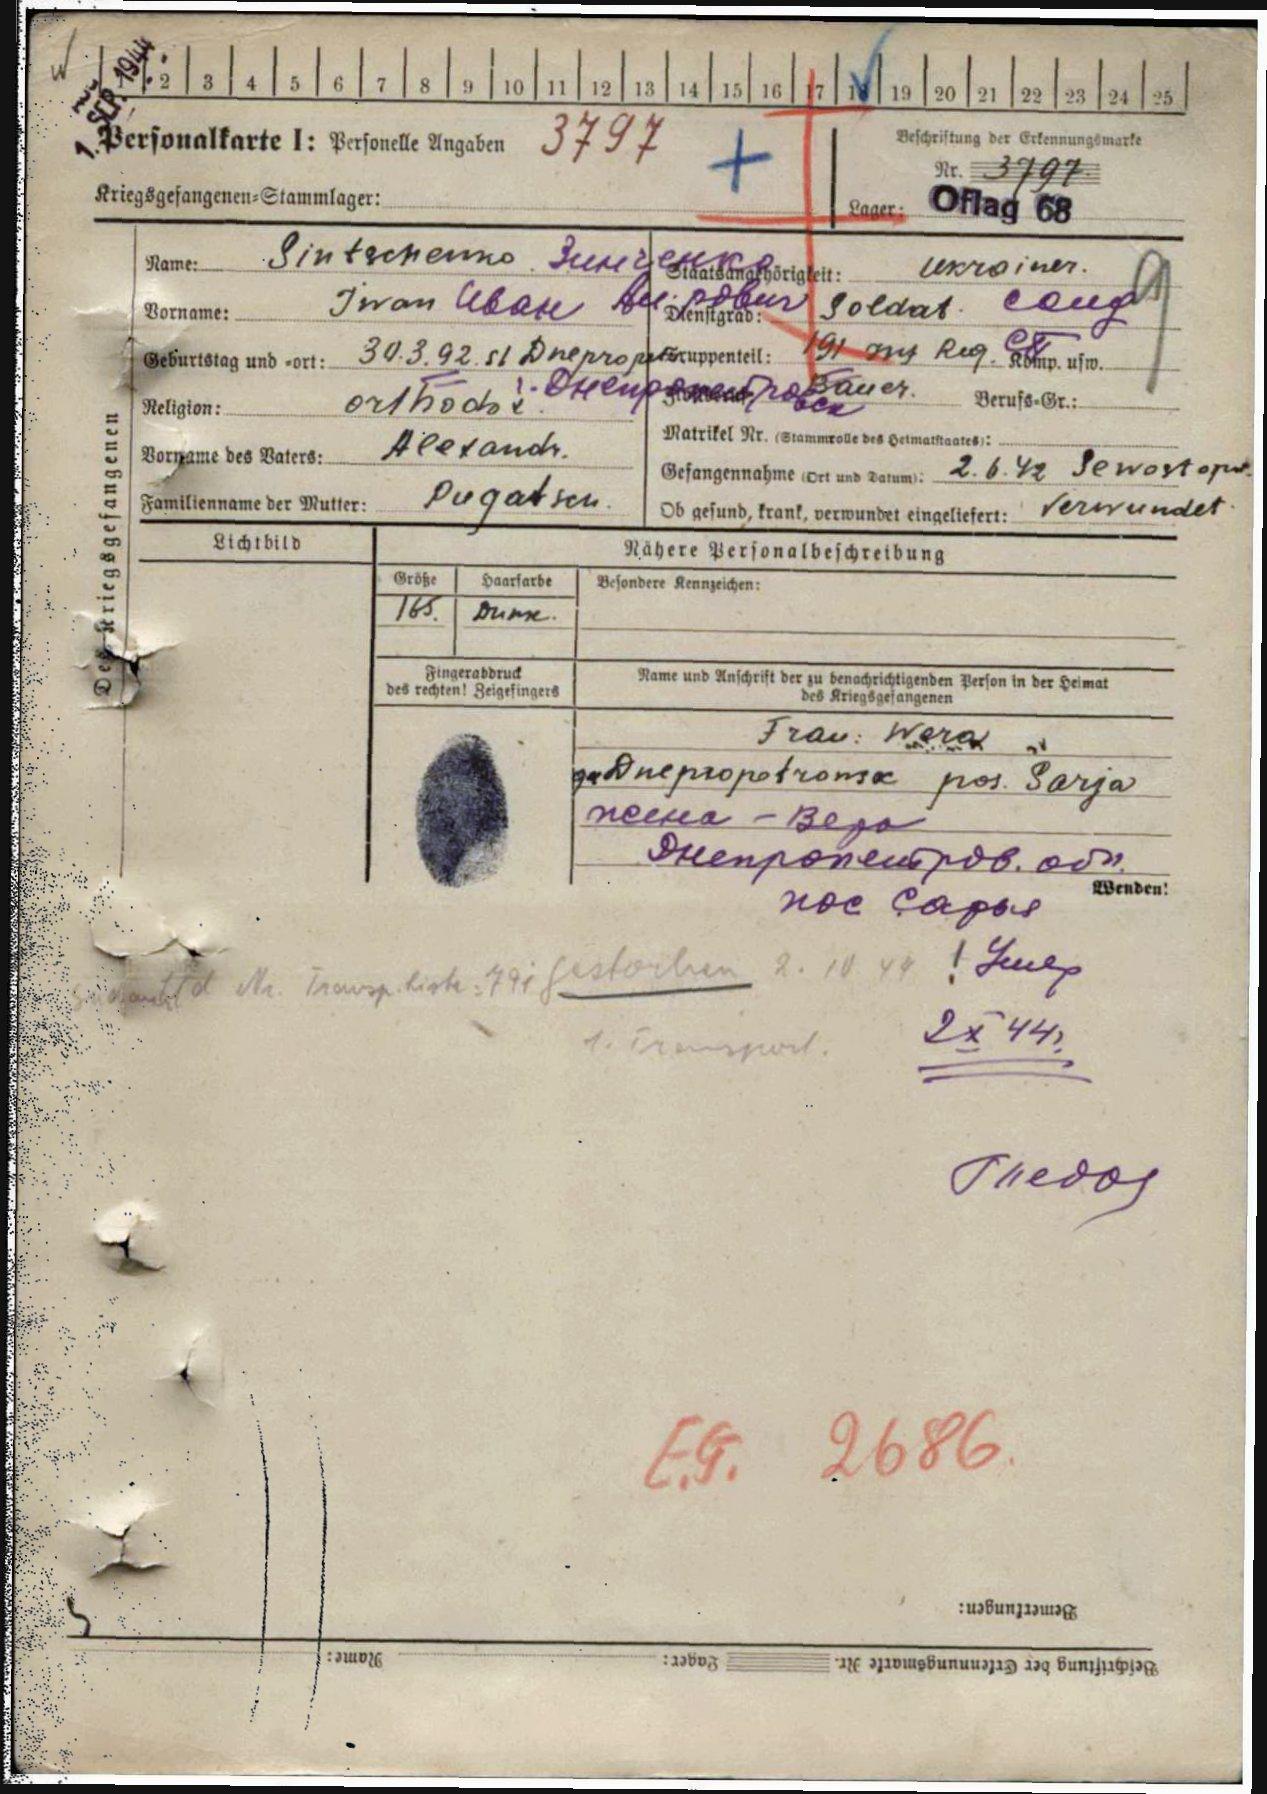 1. SEP. 1944
2 3 4 5 6 7 8 9 10 11 12 13 14 15 16 17 18 19 20 21 22 23 24 25
Personalkarte I: Personelle Angaben 3797
Beschriftung der Erkennungsmarke
Nr. 3797
Kriegsgefangenen-Stammlager:
Lager: Oflag 68
Des Kriegsgefangenen
Name: Sintschenko Зинченко
Staatsangehörigkeit: Ukrainer.
Vorname: Iwan Иван
Dienstgrad: Soldat. солд
Geburtstag und -ort: 30.3.92. st Dneprop
Truppenteil: 191 Inf Reg. СП Komp. usw.
Днепропетровск
Religion: orthodox.
Bauer. Berufs-Gr.:
Matrikel Nr. (Stammrolle des Heimatstaates):
Vorname des Vaters: Alexandr.
Gefangennahme (Ort und Datum): 2.6.42 Sewastopol.
Familienname der Mutter: Pugatsch.
Ob gesund, krank, verwundet eingeliefert: verwundet.
Lichtbild
Nähere Personalbeschreibung
Größe Haarfarbe Besondere Kennzeichen:
165. Dunk.
Fingerabdruck
des rechten! Zeigefingers
Name und Anschrift der zu benachrichtigenden Person in der Heimat
des Kriegsgefangenen
Frau: Wera
Dnepropetrowsk pos. Sarja
жена - Вера
Днепропетров. обл.
Wenden!
пос Сарья
Nr. Transp. liste: 791 gestorben 2. 10 44 ! Умер
1. Transport.
2 X 44г.
E.G. 2686.
Bemerkungen:
Beschriftung der Erkennungsmarke Nr. Lager: Name: